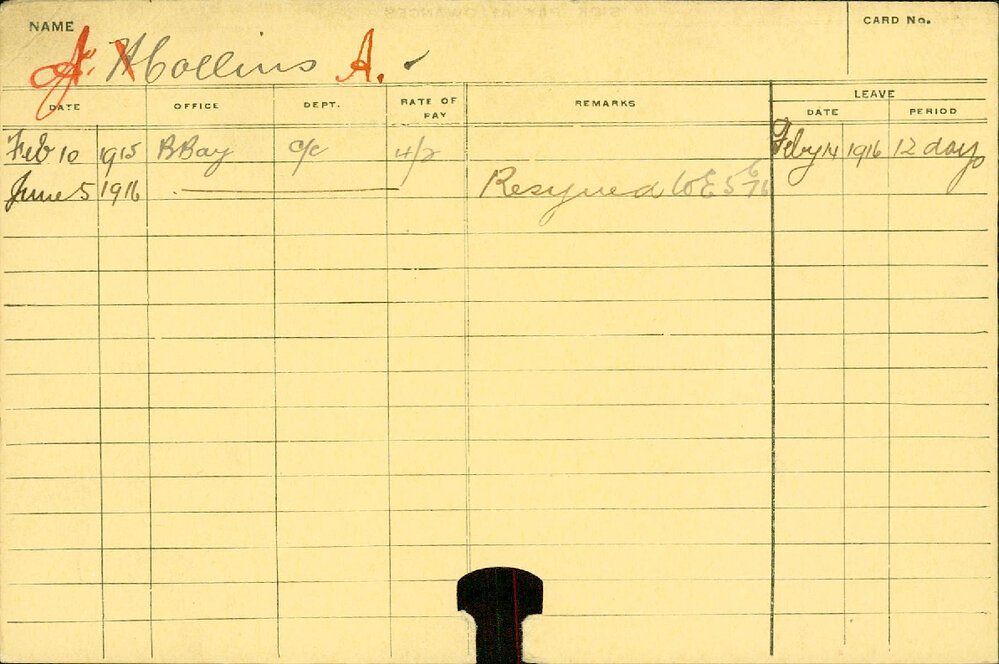 NAME
CARD No.
Collins A.
DATE OFFICE DEPT. RATE OF PAY REMARKS LEAVE
DATE PERIOD
Feb 10 1915 BBay c/c 4/2 Feby 14 1916 12 days
June 5 1916 Resigned WE 5/6/16